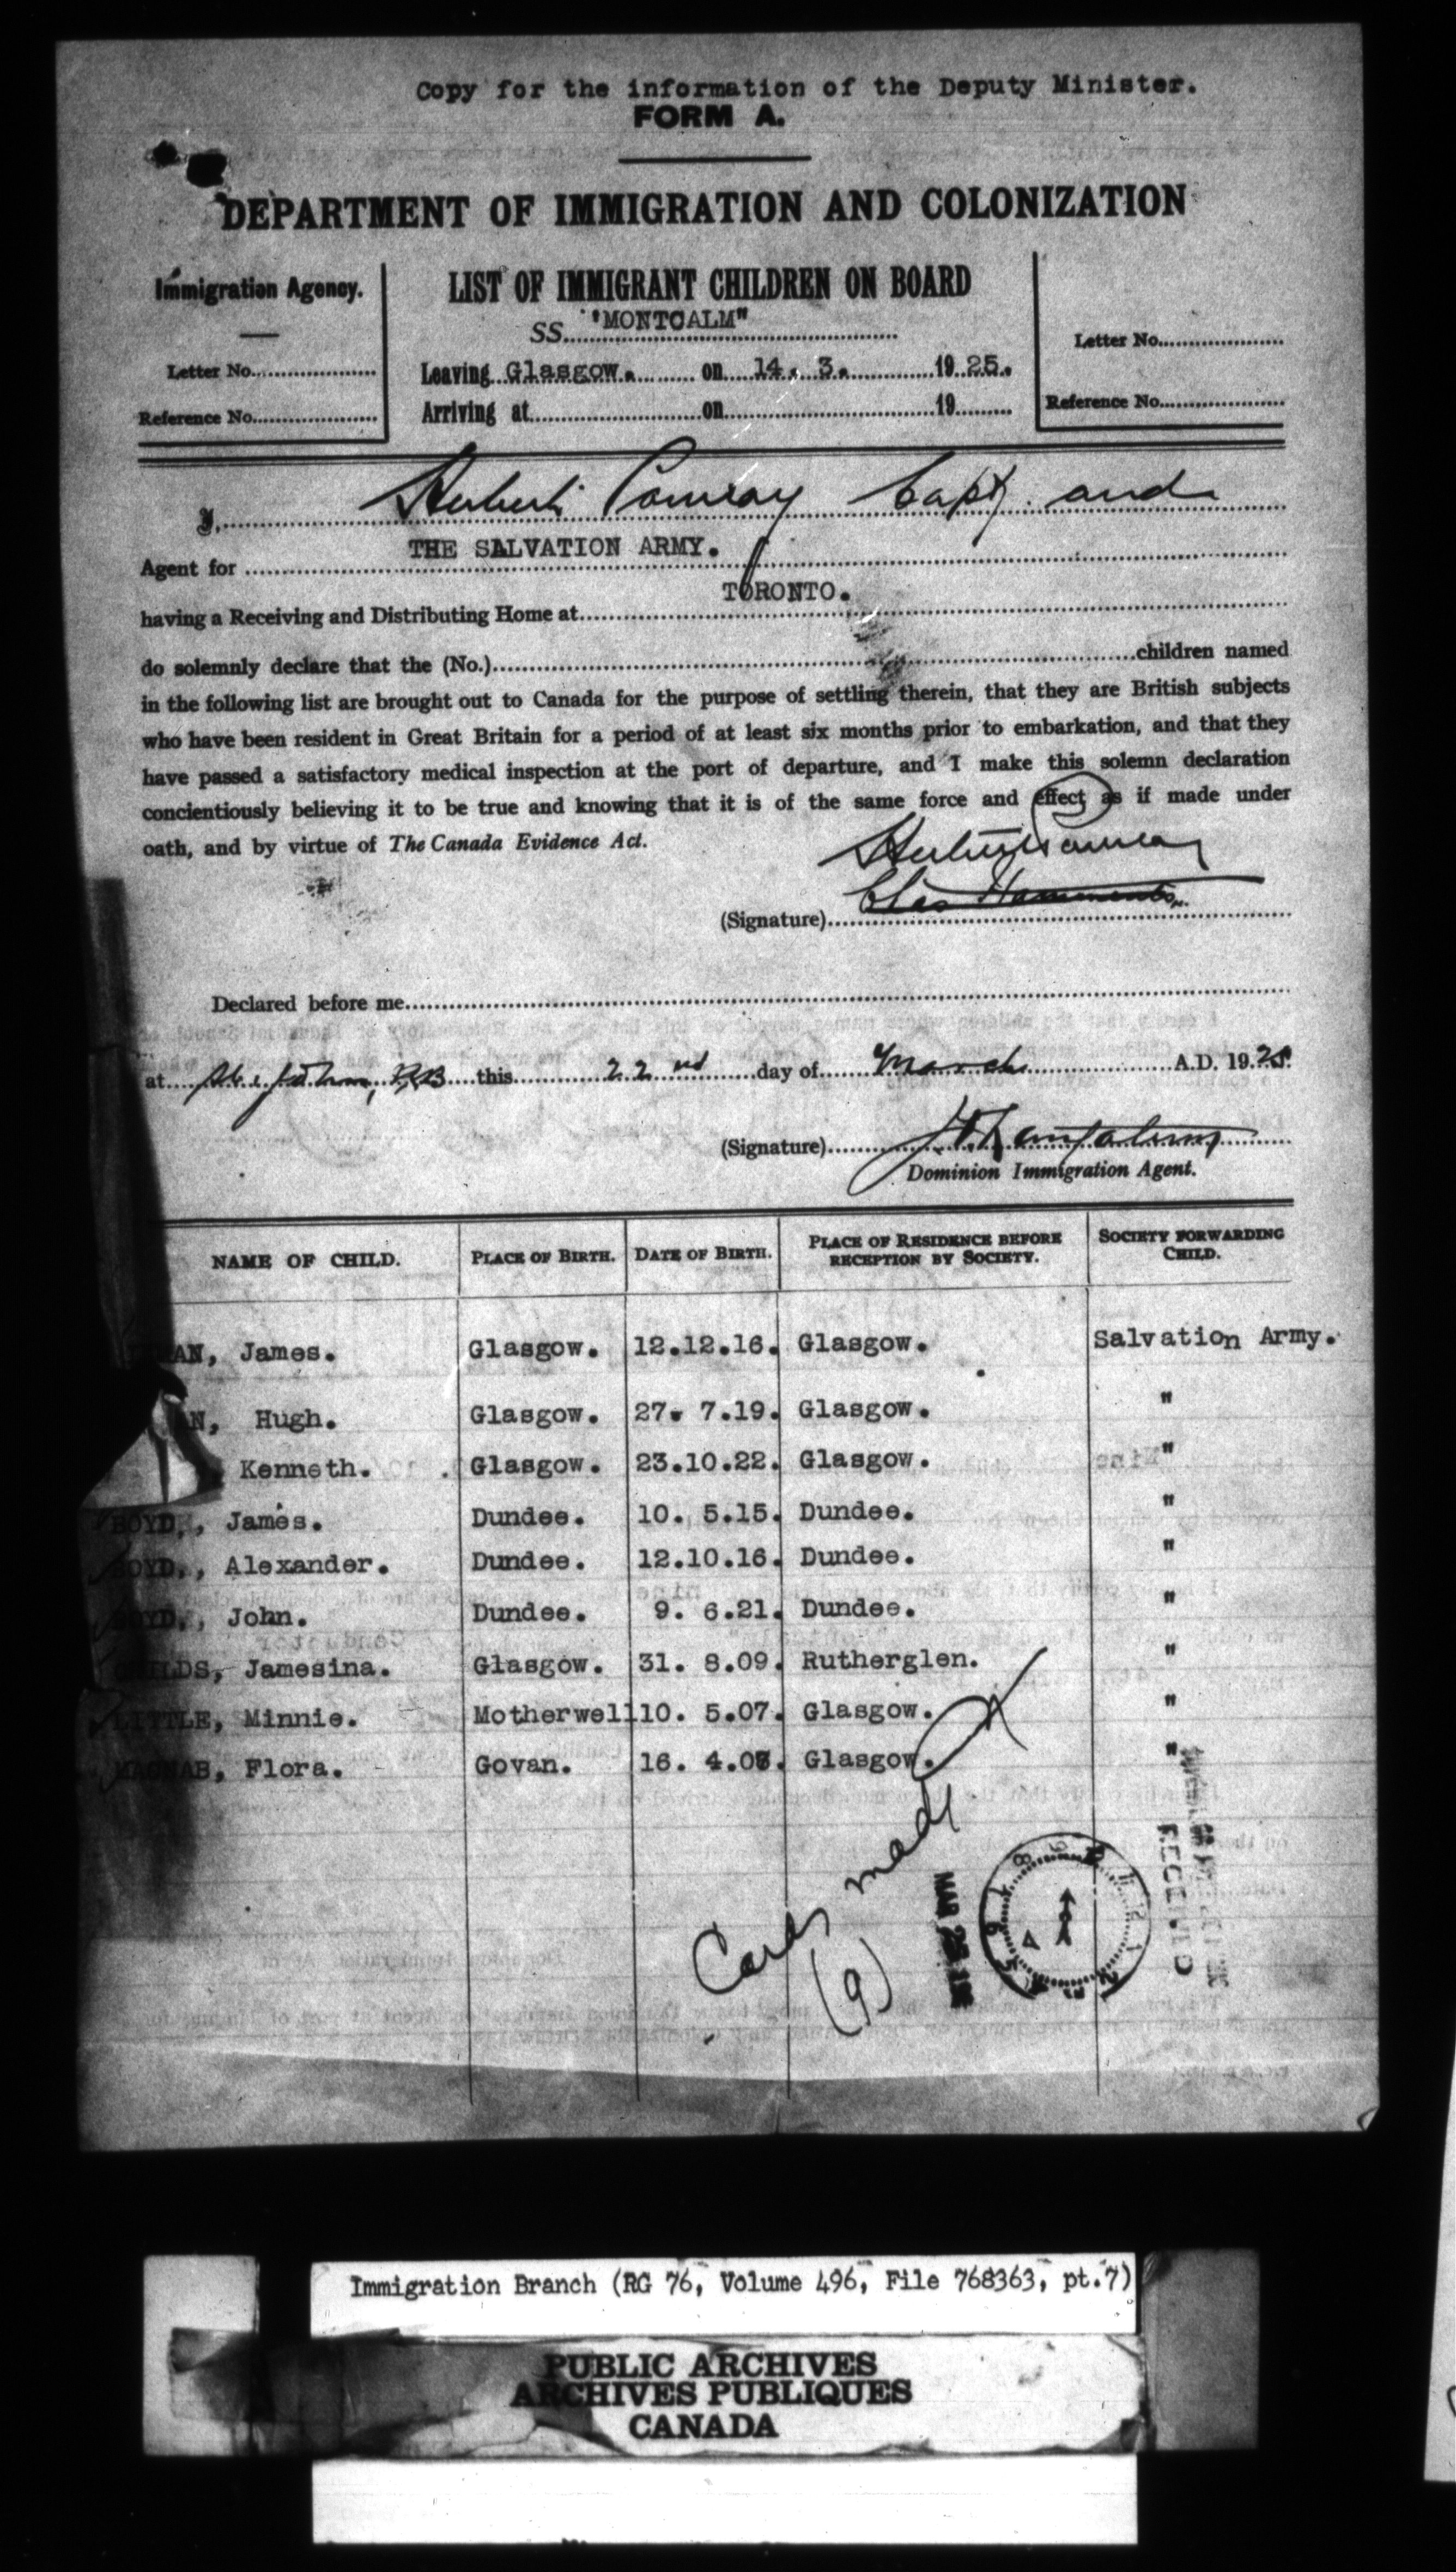 Copy for the information of the Deputy Minister.
FORM A.
DEPARTMENT OF IMMIGRATION AND COLONIZATION
Immigration Agency.
Letter No.
Reference No.
LIST OF IMMIGRANT CHILDREN ON BOARD
SS. "MONTCALM"
Leaving Glasgow. on 14. 3. 1925.
Arriving at on 19
Letter No.
Reference No.
I, Herbert Capt. and
Agent for THE SALVATION ARMY.
having a Receiving and Distributing Home at TORONTO.
do solemnly declare that the (No.) children named
in the following list are brought out to Canada for the purpose of settling therein, that they are British subjects
who have been resident in Great Britain for a period of at least six months prior to embarkation, and that they
have passed a satisfactory medical inspection at the port of departure, and I make this solemn declaration
concientiously believing it to be true and knowing that it is of the same force and effect as if made under
oath, and by virtue of The Canada Evidence Act.
(Signature)
Declared before me
at St. John, NB this 22nd day of March A.D. 1925.
(Signature)
Dominion Immigration Agent.
NAME OF CHILD. PLACE OF BIRTH. DATE OF BIRTH. PLACE OF RESIDENCE BEFORE RECEPTION BY SOCIETY. SOCIETY FORWARDING CHILD.
AN, James. Glasgow. 12.12.16. Glasgow. Salvation Army.
N, Hugh. Glasgow. 27. 7.19. Glasgow. "
Kenneth. Glasgow. 23.10.22. Glasgow. "
BOYD,, James. Dundee. 10. 5.15. Dundee. "
BOYD,, Alexander. Dundee. 12.10.16. Dundee. "
BOYD,, John. Dundee. 9. 6.21. Dundee. "
CHILDS, Jamesina. Glasgow. 31. 8.09. Rutherglen. "
LITTLE, Minnie. Motherwell 10. 5.07. Glasgow. "
MACNAB, Flora. Govan. 16. 4.08. Glasgow. "
Cards made
(9)
MAR 25
RECEIVED
Immigration Branch (RG 76, Volume 496, File 768363, pt.7)
PUBLIC ARCHIVES
ARCHIVES PUBLIQUES
CANADA